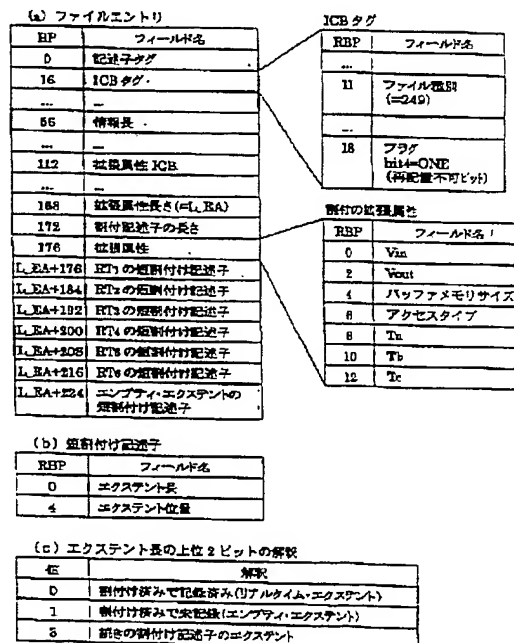 (a) ファイルエントリ
BP フィールド名
0 記述子タグ
16 ICBタグ
... ...
56 情報長
... ...
112 拡張属性 ICB
... ...
168 拡張属性長さ(=L_EA)
172 割付記述子の長さ
176 拡張属性
L_EA+176 RT1 の短割付け記述子
L_EA+184 RT2 の短割付け記述子
L_EA+192 RT3 の短割付け記述子
L_EA+200 RT4 の短割付け記述子
L_EA+208 の短割付け記述子
L_EA+216 の短割付け記述子
L_EA+224 エンプティ・エクステントの
短割付け記述子
ICB タグ
RBP フィールド名
...
11 ファイル種別
(=249)
...
18 フラグ
bit4=ONE
(再配置不可ビット)
割付の拡張属性
RBP フィールド名
0 Vin
2 Vout
4 バッファメモリサイズ
6 アクセスタイプ
8 Ta
10 Tb
12 Tc
(b) 短割付け記述子
RBP フィールド名
0 エクステント長
4 エクステント位置
(c) エクステント長の上位2ビットの解釈
値 解釈
0 割付け済みで記録済み(リアルタイム・エクステント)
1 割付け済みで未記録(エンプティ・エクステント)
3 続きの割付け記述子のエクステント